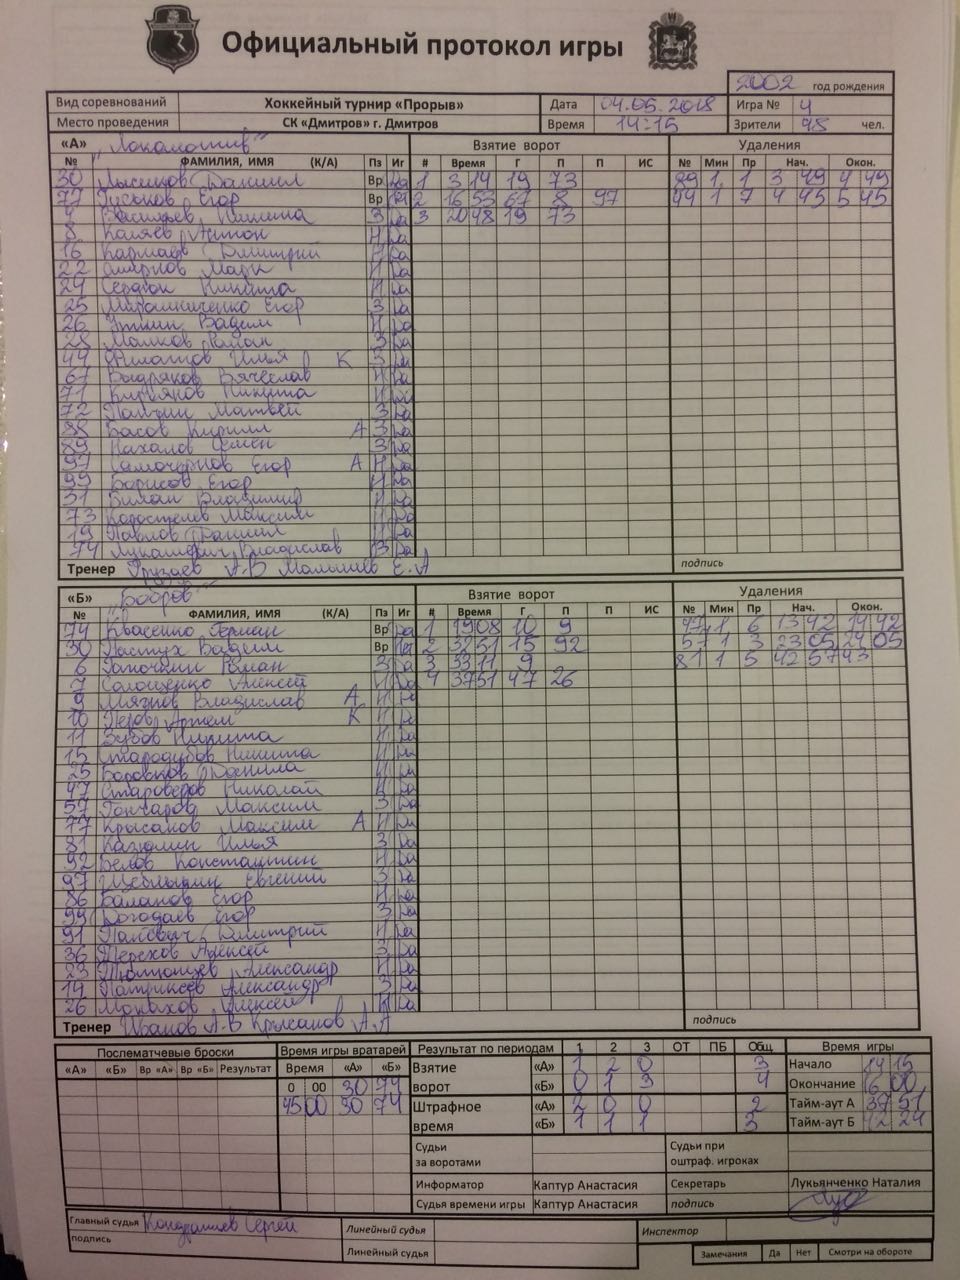 Официальный протокол игры
2002 год рождения
Вид соревнований Хоккейный турнир «Прорыв» Дата 04.05.2018 Игра № 4
Место проведения СК «Дмитров» г. Дмитров Время 14:15 Зрители 98 чел.
«А» "Локомотив" Взятие ворот Удаления
№ ФАМИЛИЯ, ИМЯ (К/А) Пз Иг # Время Г П П ИС № Мин Пр Нач. Окон.
30 Даниил Вр Да 1 3 14 19 73 89 1 1 3 49 4 49
77 Гуськов Егор Вр Нет 2 16 53 67 8 97 44 1 7 4 45 5 45
4 Васильев Никита З Да 3 20 48 19 73
8 Каляев Антон Н Да
16 Дмитрий Н Да
22 Смирнов Марк Н Да
24 Сердюк Никита Н Да
25 Мирошниченко Егор З Да
26 Уткин Вадим Н Да
28 Малков Роман З Да
49 Филатов Илья К З Да
67 Вячеслав Н Да
71 Кирьяков Никита Н Да
72 Матвей З Да
88 Басов Кирилл А З Да
89 Нахалов Семен З Да
97 Самочернов Егор А Н Да
99 Борисов Егор Н Да
51 Владимир Н Да
73 Коростелев Максим Н Да
19 Павлов Даниил Н Да
74 Лукашевич Владислав З Да
Тренер Грузаев А.В Малышев Е.А подпись
«Б» "Бобров" Взятие ворот Удаления
№ ФАМИЛИЯ, ИМЯ (К/А) Пз Иг # Время Г П П ИС № Мин Пр Нач. Окон.
74 Квасенко Герман Вр Да 1 19 08 10 9 97 1 6 13 42 14 42
30 Пастух Вадим Вр Нет 2 32 51 15 92 57 1 3 23 05 24 05
6 Гапочкин Роман З Да 3 33 11 9 81 1 5 42 57 43
7 Солощенко Алексей Н Да 4 37 51 47 26
9 Мягков Владислав А Н Да
10 Перов Артем К Н Да
11 Зубов Никита Н Да
15 Стародубов Никита Н Да
25 Боровков Данила Н Да
47 Староверов Николай Н Да
57 Гончаров Максим З Да
77 Крысанов Максим А Н Да
81 Казюлин Илья З Да
92 Белов Константин Н Да
97 Щеблыкин Евгений З Да
86 Баланов Егор Н Да
99 Богодаев Егор З Да
91 Дмитрий Н Да
36 Терехов Алексей З Да
23 Александр Н Да
14 Патрикеев Александр З Да
26 Монахов Алексей Н Да
Тренер Иванов А.В Крысанов А.А подпись
Послематчевые броски Время игры вратарей Результат по периодам 1 2 3 ОТ ПБ Общ. Время игры
«А» «Б» Вр «А» Вр «Б» Результат Время «А» «Б» Взятие ворот «А» 1 2 0 3 Начало 14 15
0 00 30 74 «Б» 0 1 3 4 Окончание 16 00
45 00 30 74 Штрафное время «А» 2 0 0 2 Тайм-аут А 37 51
«Б» 1 1 1 3 Тайм-аут Б 42 24
Судьи за воротами Судьи при оштраф. игроках
Информатор Каптур Анастасия Секретарь Лукьянченко Наталия
Судья времени игры Каптур Анастасия подпись
Главный судья Кондрашев Сергей Линейный судья Инспектор
подпись Линейный судья Замечания Да Нет Смотри на обороте